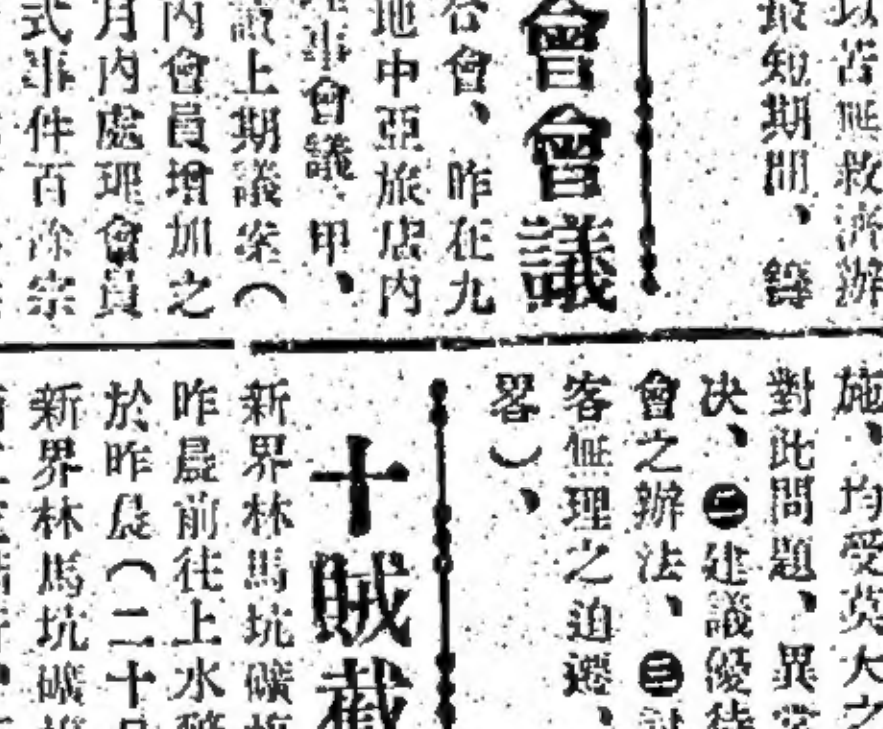 以苦無救濟辦
最短期間、
會會議
合會、昨在九
地中亞旅店內
事會議、甲、
上期議案（
內會員增加之
月內處理會員
式事件百餘宗
施、均受莫大之
對此問題、異常
决、㊁建議優待
會之辦法、㊂討
客無理之迫遷、
畧）、
十賊截
新界林馬坑礦
昨晨前往上水
於昨晨（二十
新界林馬坑礦